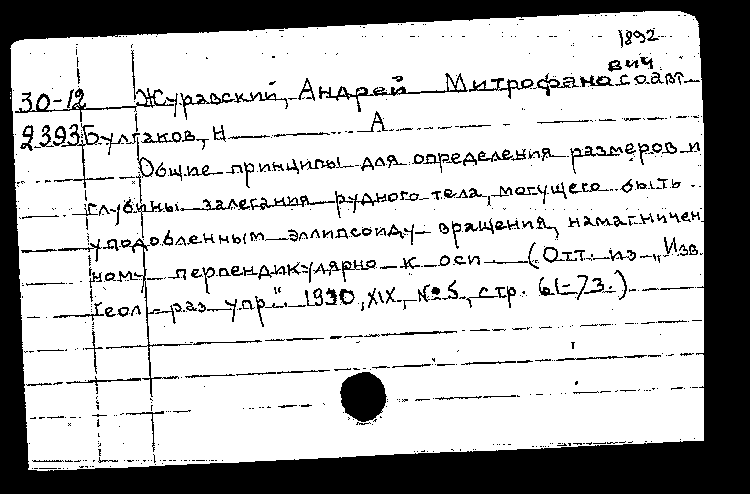 1892
вич
30-12 Журавский, Андрей Митрофано соавт
2393 Булгаков, Н А
Общие принципы для определения размеров и
глубины залегания рудного тела, могущего быть
уподобленным эллипсоиду вращения, намагничен
ному перпендикулярно к оси. (Отт. из „Изв.
геол-раз упр". 1930, XIX, № 5, стр. 61-73.)